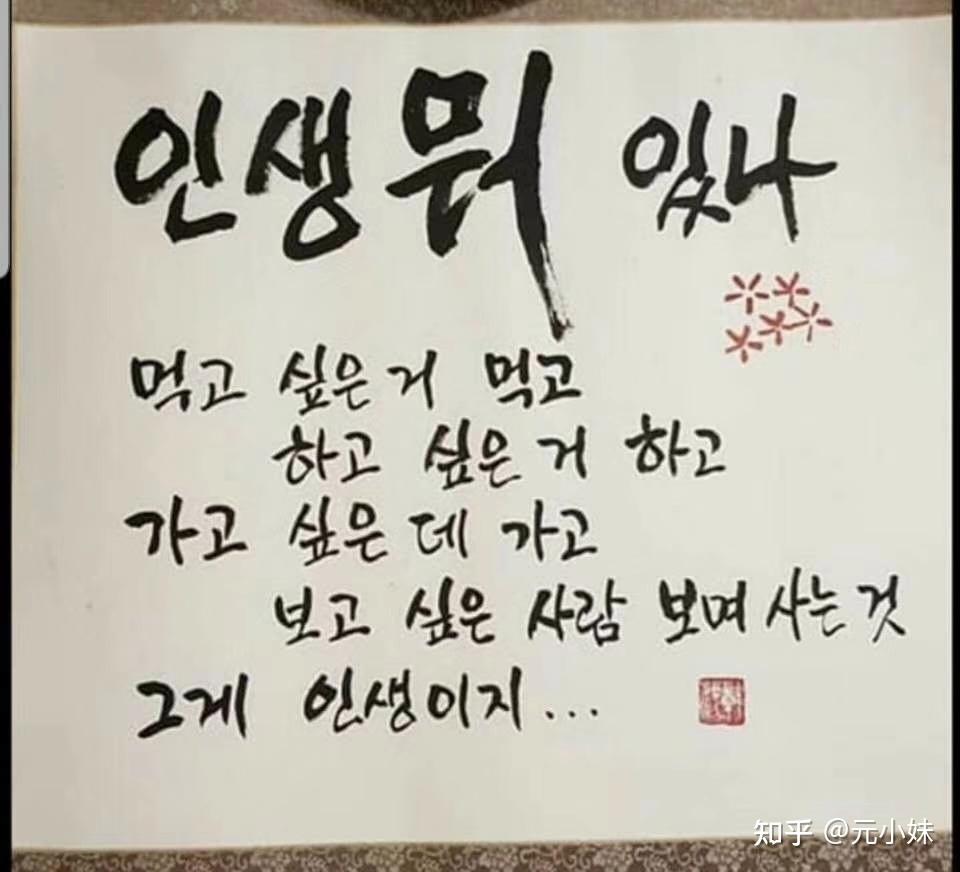 인생 뭐 있나
먹고 싶은 거 먹고
하고 싶은 거 하고
가고 싶은 데 가고
보고 싶은 사람 보며 사는 것
그게 인생이지...
知乎 @元小妹